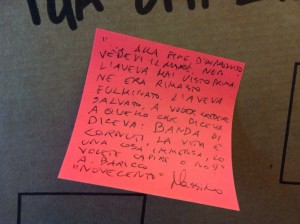 "ALLA FINE D'IMPROVVISO
VEDEVI IL MARE. NON
L'AVEVA MAI VISTO PRIMA
NE ERA RIMASTO
FULMINATO. L'AVEVA
SALVATO, A VOLER CREDERE
A QUELLO CHE DICEVA
DICEVA: BANDA DI
CORNUTI, LA VITA È
UNA COSA IMMENSA, LO
VOLETE CAPIRE O NO?"
A. BARICCO
"NOVECENTO" Massimo